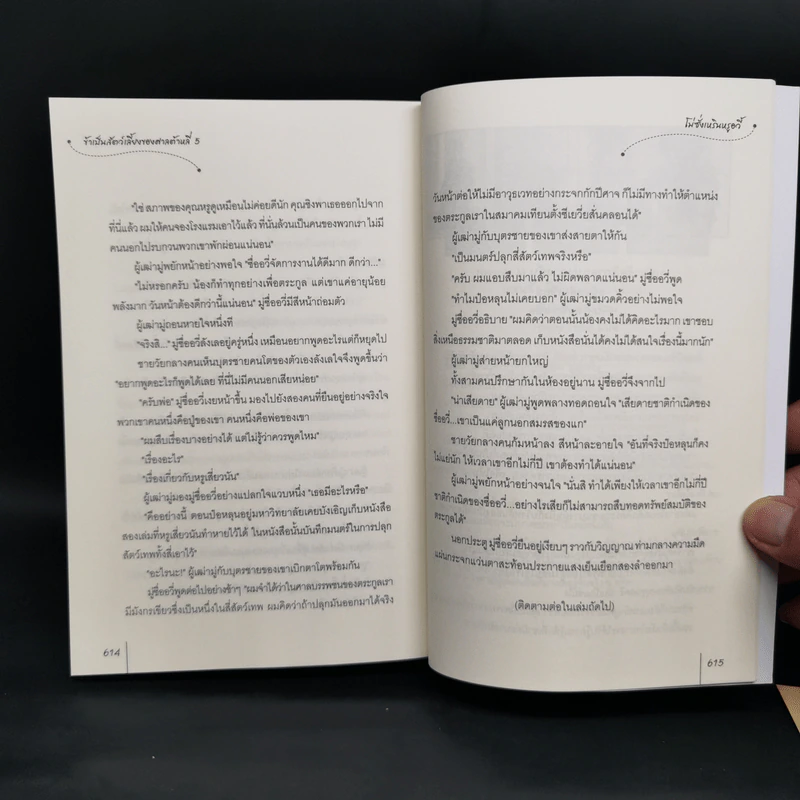 ข้าเป็นสัตว์เลี้ยงของศาลต้าหลี่ 5
"ใช่ สภาพของคุณหรูดูเหมือนไม่ค่อยดีนัก คุณชิงพาเธอออกไปจาก
ที่นี่แล้ว ผมให้คนจองโรงแรมเอาไว้แล้ว ที่นั่นล้วนเป็นคนของพวกเรา ไม่มี
คนนอกไปรบกวนพวกเขาพักผ่อนแน่นอน"
ผู้เฒ่ามู่พยักหน้าอย่างพอใจ "ซื่ออวี้จัดการงานได้ดีมาก ดีกว่า..."
"ไม่หรอกครับ น้องก็ทำทุกอย่างเพื่อตระกูล แต่เขาแค่อายุน้อย
พลังมาก วันหน้าต้องดีกว่านี้แน่นอน" มู่ซื่ออวี้มีสีหน้าถ่อมตัว
ผู้เฒ่ามู่ถอนหายใจหนึ่งที
"จริงสิ..." มู่ซื่ออวี้ลังเลอยู่ครู่หนึ่ง เหมือนอยากพูดอะไรแต่ก็หยุดไป
ชายวัยกลางคนเห็นบุตรชายคนโตของตัวเองลังเลใจจึงพูดขึ้นว่า
"อยากพูดอะไรก็พูดได้เลย ที่นี่ไม่มีคนนอกเสียหน่อย"
"ครับพ่อ" มู่ซื่ออวี้เงยหน้าขึ้น มองไปยังสองคนที่ยืนอยู่อย่างจริงใจ
พวกเขาคนหนึ่งคือปู่ของเขา คนหนึ่งคือพ่อของเขา
"ผมสืบเรื่องบางอย่างได้ แต่ไม่รู้ว่าควรพูดไหม"
"เรื่องอะไร"
"เรื่องเกี่ยวกับหรูเสี่ยวนัน"
ผู้เฒ่ามู่มองมู่ซื่ออวี้อย่างแปลกใจแวบหนึ่ง "เธอมีอะไรหรือ"
"คืออย่างนี้ ตอนป๋อหลุนอยู่มหาวิทยาลัยเคยบังเอิญเก็บหนังสือ
สองเล่มที่หรูเสี่ยวนันทำหายไว้ได้ ในหนังสือนั้นบันทึกมนตร์ในการปลุก
สัตว์เทพทั้งสี่เอาไว้"
"อะไรนะ!" ผู้เฒ่ามู่กับบุตรชายของเขาเบิกตาโตพร้อมกัน
มู่ซื่ออวี้พูดต่อไปอย่างช้าๆ "ผมจำได้ว่าในศาลบรรพชนของตระกูลเรา
มีมังกรเขียวซึ่งเป็นหนึ่งในสี่สัตว์เทพ ผมคิดว่าถ้าปลุกมันออกมาได้จริง
614
โม่ซั่งเหรินหรูอวี้
วันหน้าต่อให้ไม่มีอาวุธเวทอย่างกระจกกักปีศาจ ก็ไม่มีทางทำให้ตำแหน่ง
ของตระกูลเราในสมาคมเทียนตั้งซีเยวี่ยสั่นคลอนได้"
ผู้เฒ่ามู่กับบุตรชายของเขาส่งสายตาให้กัน
"เป็นมนตร์ปลุกสี่สัตว์เทพจริงหรือ"
"ครับ ผมแอบสืบมาแล้ว ไม่ผิดพลาดแน่นอน" มู่ซื่ออวี้พูด
"ทำไมป๋อหลุนไม่เคยบอก" ผู้เฒ่ามู่ขมวดคิ้วอย่างไม่พอใจ
มู่ซื่ออวี้อธิบาย "ผมคิดว่าตอนนั้นน้องคงไม่ได้คิดอะไรมาก เขาชอบ
สิ่งเหนือธรรมชาติมาตลอด เก็บหนังสือนั่นได้คงไม่ได้สนใจเรื่องนี้มากนัก"
ผู้เฒ่ามู่ส่ายหน้ายกใหญ่
ทั้งสามคนปรึกษากันในห้องอยู่นาน มู่ซื่ออวี้จึงจากไป
"น่าเสียดาย" ผู้เฒ่ามู่พูดพลางทอดถอนใจ "เสียดายชาติกำเนิดของ
ซื่ออวี้...เขาเป็นแค่ลูกนอกสมรสของแก"
ชายวัยกลางคนก้มหน้าลง สีหน้าละอายใจ "อันที่จริงป๋อหลุนก็คง
ไม่แย่นัก ให้เวลาเขาอีกไม่กี่ปี เขาต้องทำได้แน่นอน"
ผู้เฒ่ามู่พยักหน้าอย่างจนใจ "นั่นสิ ทำได้เพียงให้เวลาเขาอีกไม่กี่ปี
ชาติกำเนิดของซื่ออวี้...อย่างไรเสียก็ไม่สามารถสืบทอดทรัพย์สมบัติของ
ตระกูลได้"
นอกประตู มู่ซื่ออวี้ยืนอยู่เงียบๆ ราวกับวิญญาณ ท่ามกลางความมืด
แผ่นกระจกแว่นตาสะท้อนประกายแสงเย็นเยือกสองลำออกมา
(ติดตามต่อในเล่มถัดไป)
615